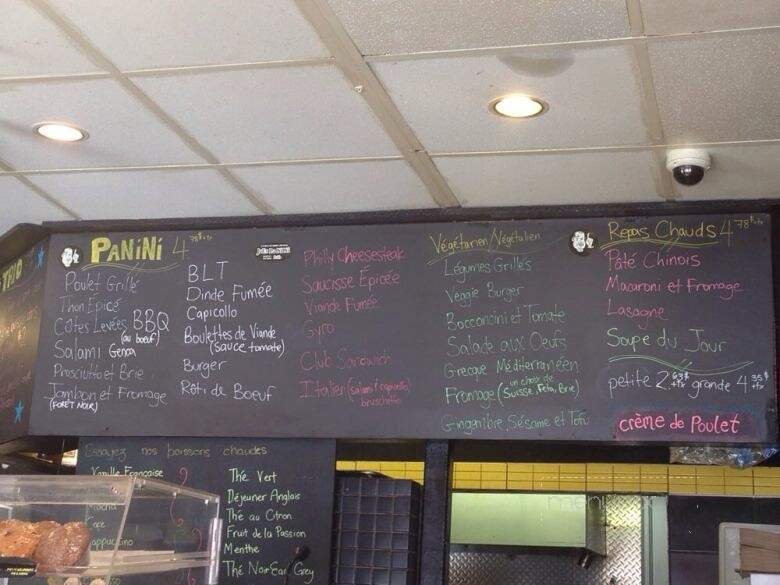 PANiNi 4 78¢+tx
Poulet Grillé
Thon Épicé
Côtes Levées BBQ
(au boeuf)
Salami Genoa
Prosciutto et Brie
Jambon et Fromage
(FORÊT NOIR)
BLT
Dinde Fumée
Capicollo
Boulettes de Viande
(Sauce tomate)
Burger
Rôti de Boeuf
Philly Cheesesteak
Saucisse Épicée
Viande Fumée
Gyro
Club Sandwich
Italien (Salami/capicollo/
bruschetta
Végétarien/Végétalien
Légumes Grillés
Veggie Burger
Bocconcini et Tomate
Salade aux Oeufs
Grecque Méditerranéen
Fromage (un choix de
Suisse, Feta, Brie)
Gingembre, Sésame et Tofu
Repas Chauds 4 78¢+tx
Pâté Chinois
Macaroni et Fromage
Lasagne
Soupe du Jour
petite 2 63¢+tx grande 4 35¢+tx
crème de Poulet
Essayez nos boissons chaudes
Vanille Française
Mocha
Café
Cappuccino
Thé Vert
Déjeuner Anglais
Thé au Citron
Fruit de la Passion
Menthe
Thé Noir Earl Grey